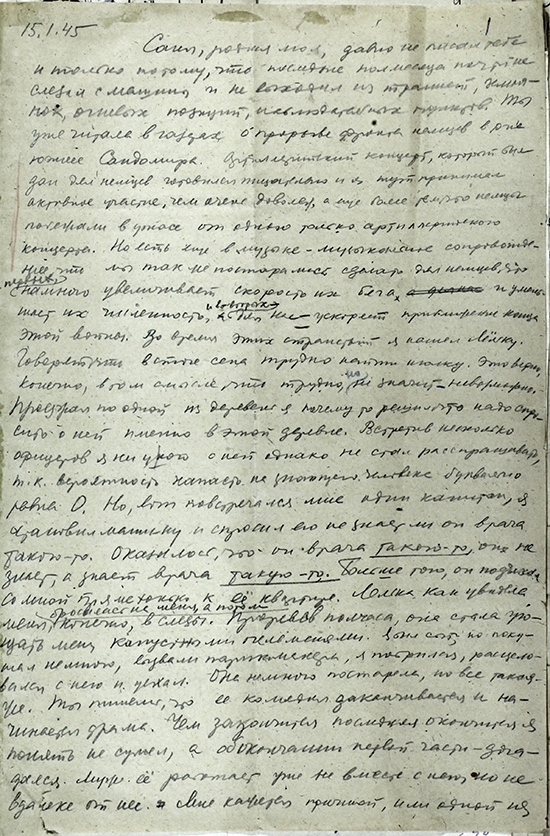 15.1.45
1
Саня, родная моя, давно не писал тебе
и только потому, что последние полмесяца почти не
слезал с машины и не выходил из траншей, землян-
нок, огневых позиций, наблюдательных пунктов. Ты
уже читала в газетах о прорыве фронта немцев в р-не
южнее Сандомира. Артиллерийский концерт, который был
дан для немцев готовился тщательно и я тут принимал
активное участие, чем очень доволен, а еще более тем, что немцы
побежали в ужасе от одного только артиллерийского
концерта. Но есть еще в музыке - музыкальное сопровожде-
ние, что мы так же постарались сделать для немцев, что
первых
намного увеличивает скорость их бега, и умень-
шает их численность, а вторых
нас - ускорит приближение конца
этой войны. Во время этих странствий я нашел Лёльку.
Говорят, что в стоге сена трудно найти иголку. Это верно,
конечно, в том смысле, что трудно, но не значит - невозможно.
Проезжая по одной из деревень я почему то решил что надо спро-
сить о ней именно в этой деревне. Встретив несколько
офицеров я ни у кого о ней однако не стал расспрашивать,
т.к. вероятность напасть на знающего человека буквально
равна 0. Но, вот повстречался мне один капитан, я
остановил машину и спросил его не знает ли он врача
такого-то. Оказалось, что он врача такого-то, он не
знает, а знает врача такую-то. Больше того, он подъехал
со мной прямехонько к её квартире. Лёлька как увидела
бросилась на меня, а потом
меня, конечно, в слезы. Проревев полчаса, она стала уго-
щать меня капустными пельменями. Я был сыт, но поку-
шал немного, вызвали парикмахера, я постригся, расцело-
вался с нею и уехал. Она немного постарела, но все такая-
же. Ты пишешь, что ее комедия заканчивается и на-
чинается драма. Чем закончится последняя окончится я
понять не сумел, а об окончании первой части - дога-
дался. Мурр её работает уже не вместе с нею, но не
вдалеке от нее. Мне кажется причиной, или одной из